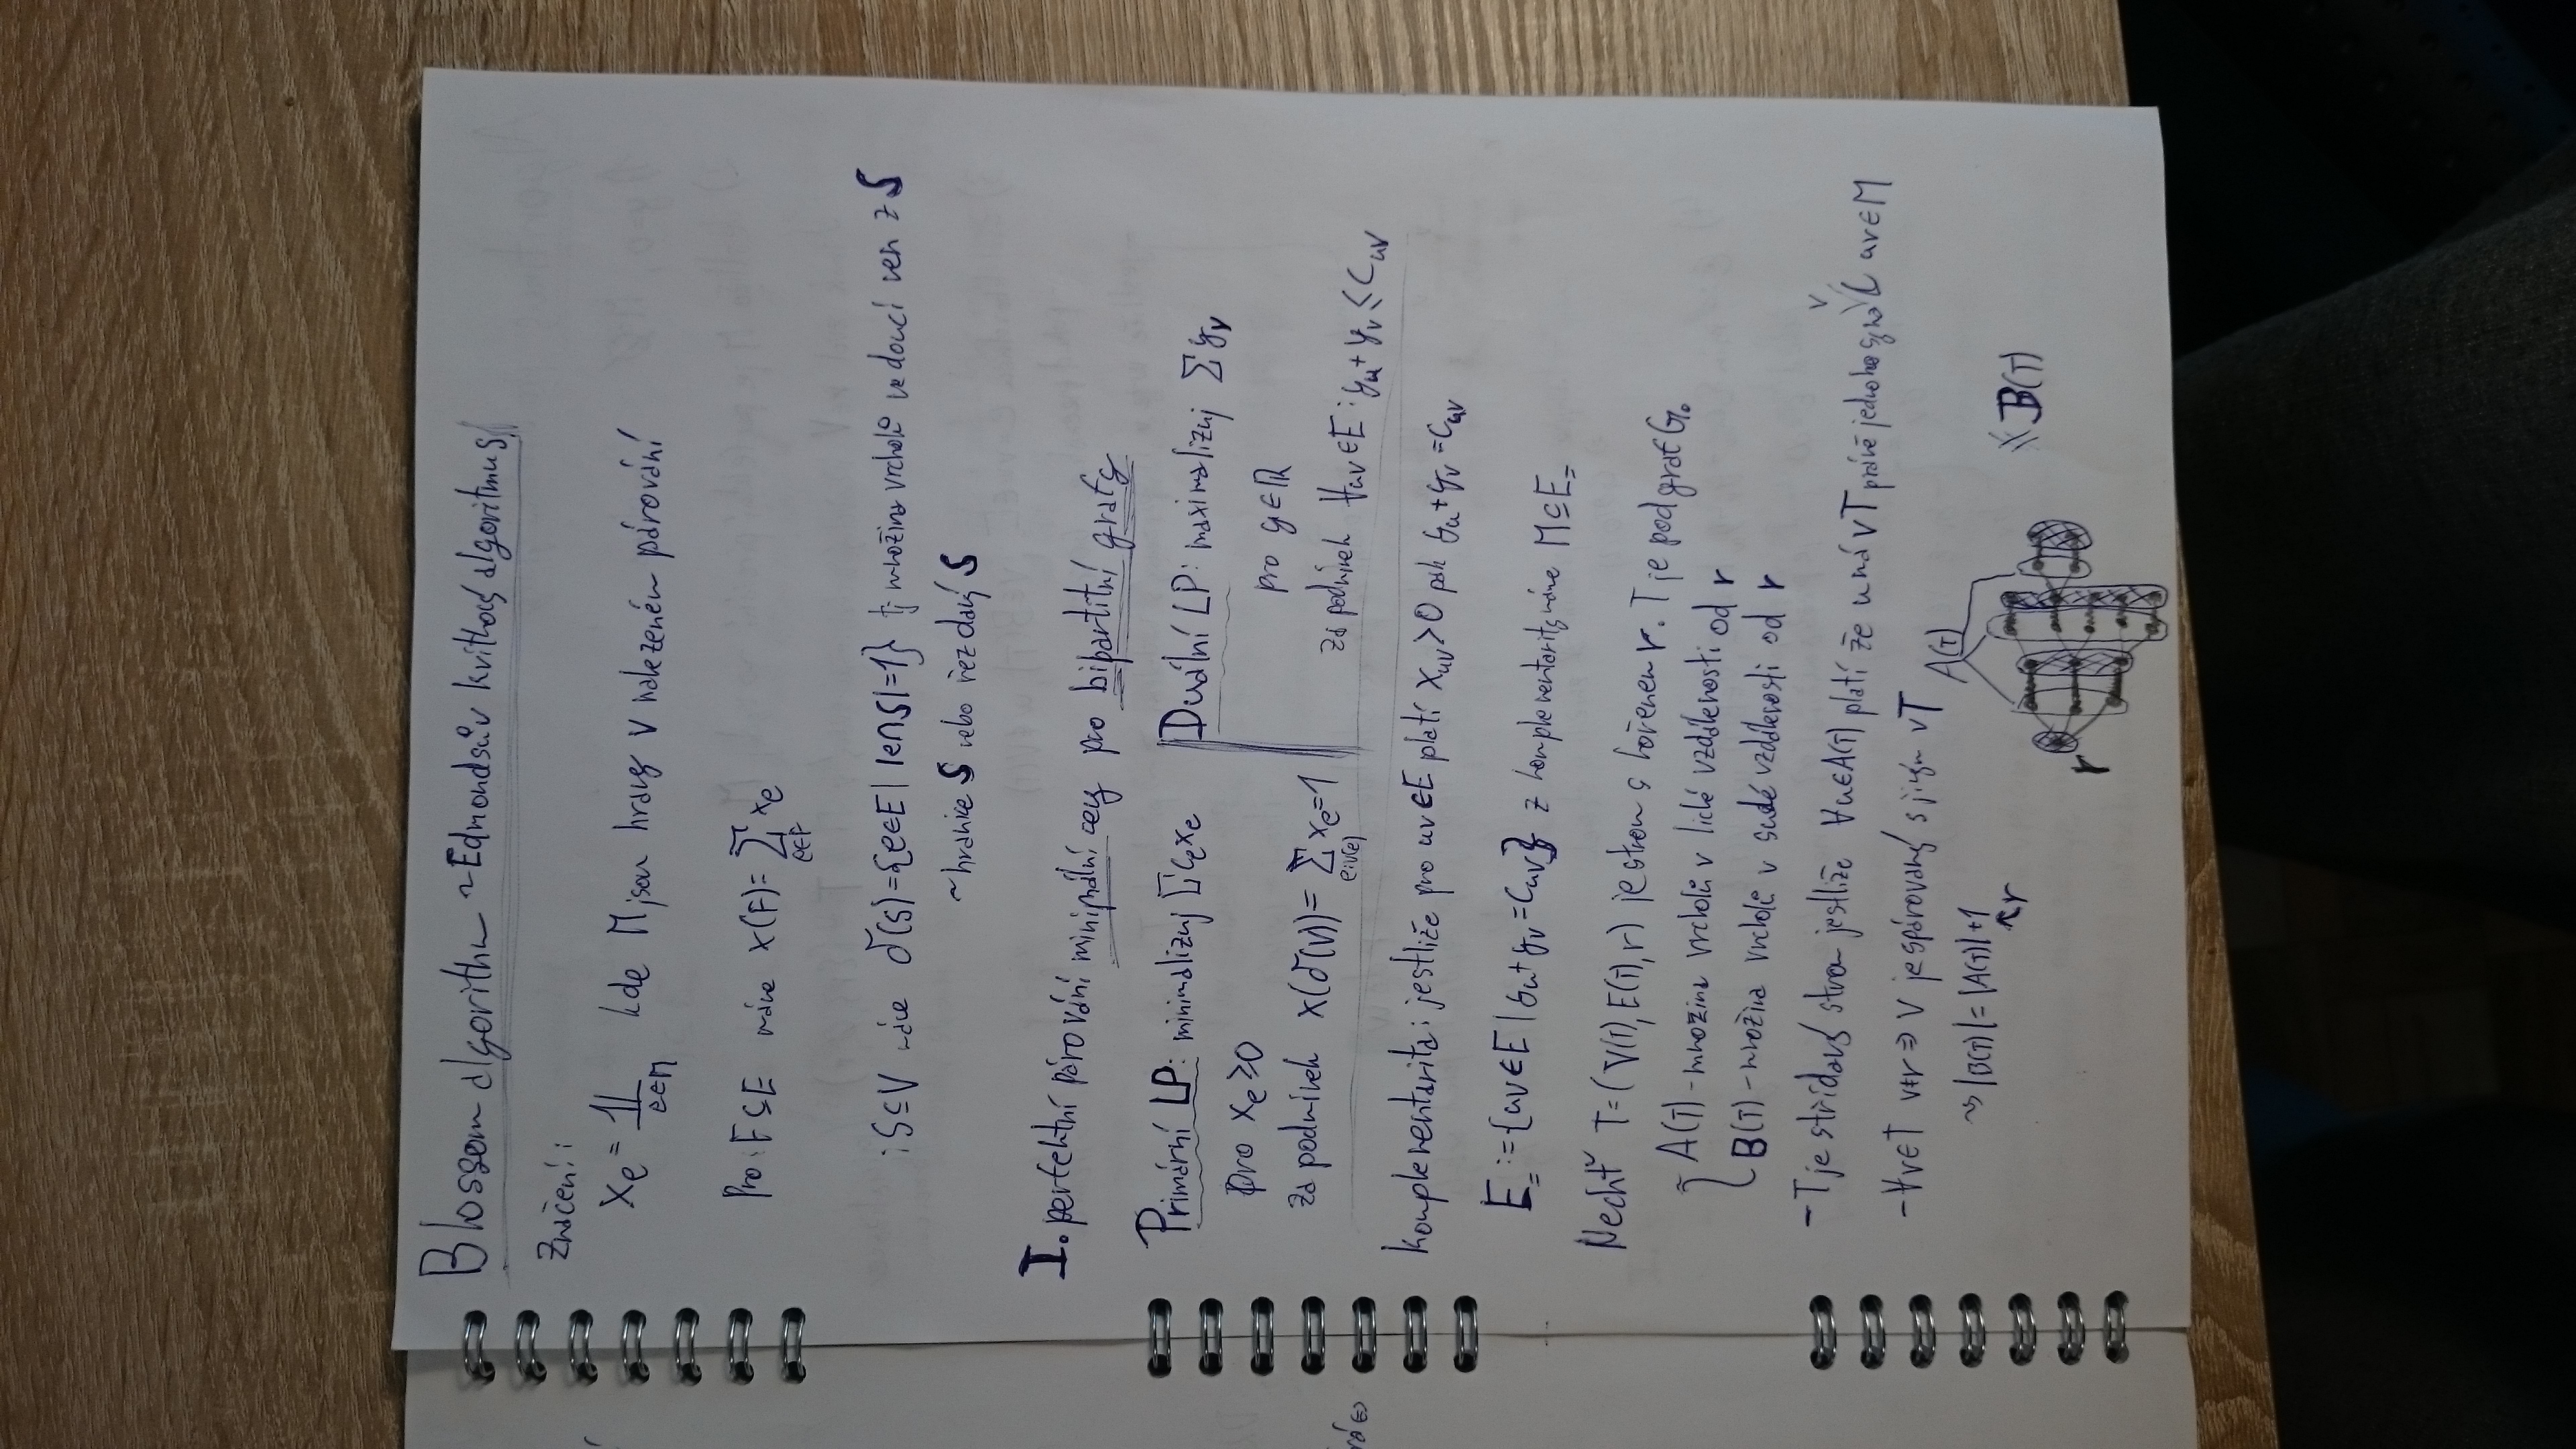 Blossom algorithm ~ Edmondsův květkový algoritmus
Značení:
Xe = 𝟙 e∈M kde M jsou hrany v nalezeném párování
Pro: F⊆E máme x(F) = ∑ e∈F xe
: S⊆V máme δ(S) = {e∈E | |e∩S|=1} tj množina vrcholů vedoucí ven z S
~ hranice S nebo řez daný S
I. perfektní párování minimální ceny pro bipartitní grafy
Primární LP: minimalizuj ∑ ce xe
pro xe ≥ 0
za podmínek x(δ(v)) = ∑ xe = 1
Duální LP: maximalizuj ∑ yv
pro y∈ℝ
za podmínek ∀uv∈E: yu + yv ≤ Cuv
komplementarita: jestliže pro uv∈E platí Xuv>0 pak yu + yv = Cuv
E= := {uv∈E | yu + yv = Cuv} z komplementarity máme M⊆E=
Nechť T = (V(T), E(T), r) je strom s kořenem r. T je podgraf G.
A(T) - množina vrcholů v liché vzdálenosti od r
B(T) - množina vrcholů v sudé vzdálenosti od r
- T je střídavý strom jestliže ∀u∈A(T) platí že u má v T právě jednoho syna v uv∈M
- ∀v∈T v≠r ⇒ v je spárovaný s jiným v T
⇝ |B(T)| = |A(T)|+1
r
A(T)
r
B(T)